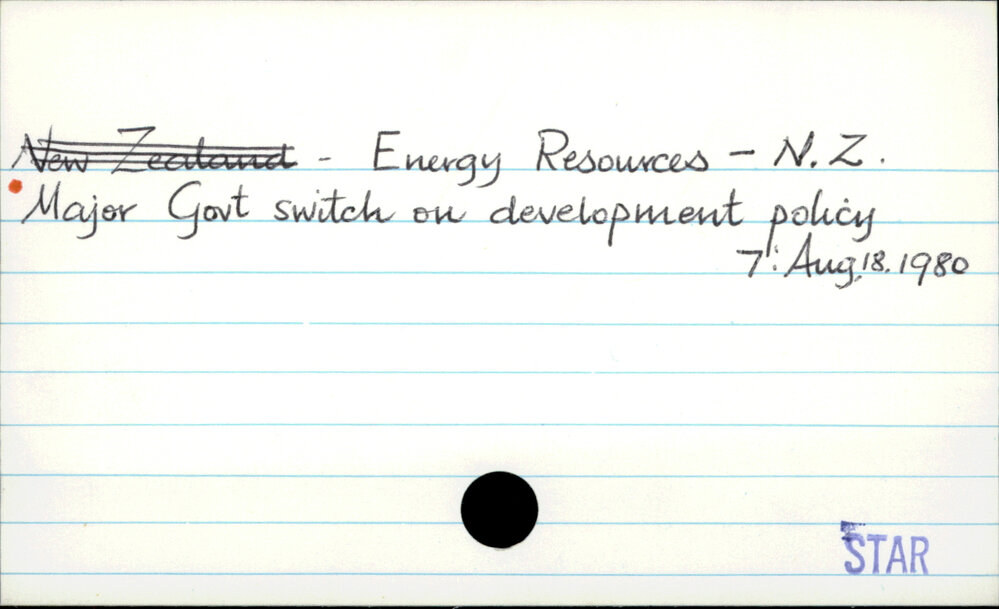 New Zealand - Energy Resources - N.Z.
Major Govt switch on development policy
7: Aug.18.1980
STAR